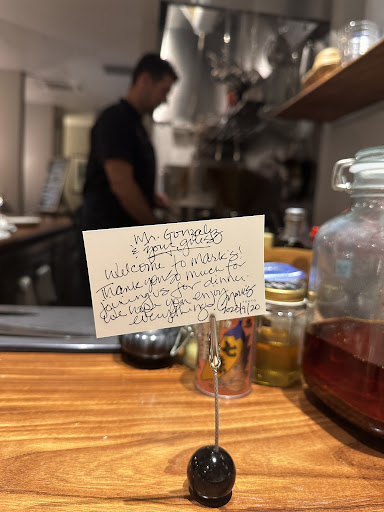 Mr. Gonzalz
& your guest
Welcome to Mark's!
Thank you so much for
joining us for dinner
We hope you enjoy
everything
2025/1/20